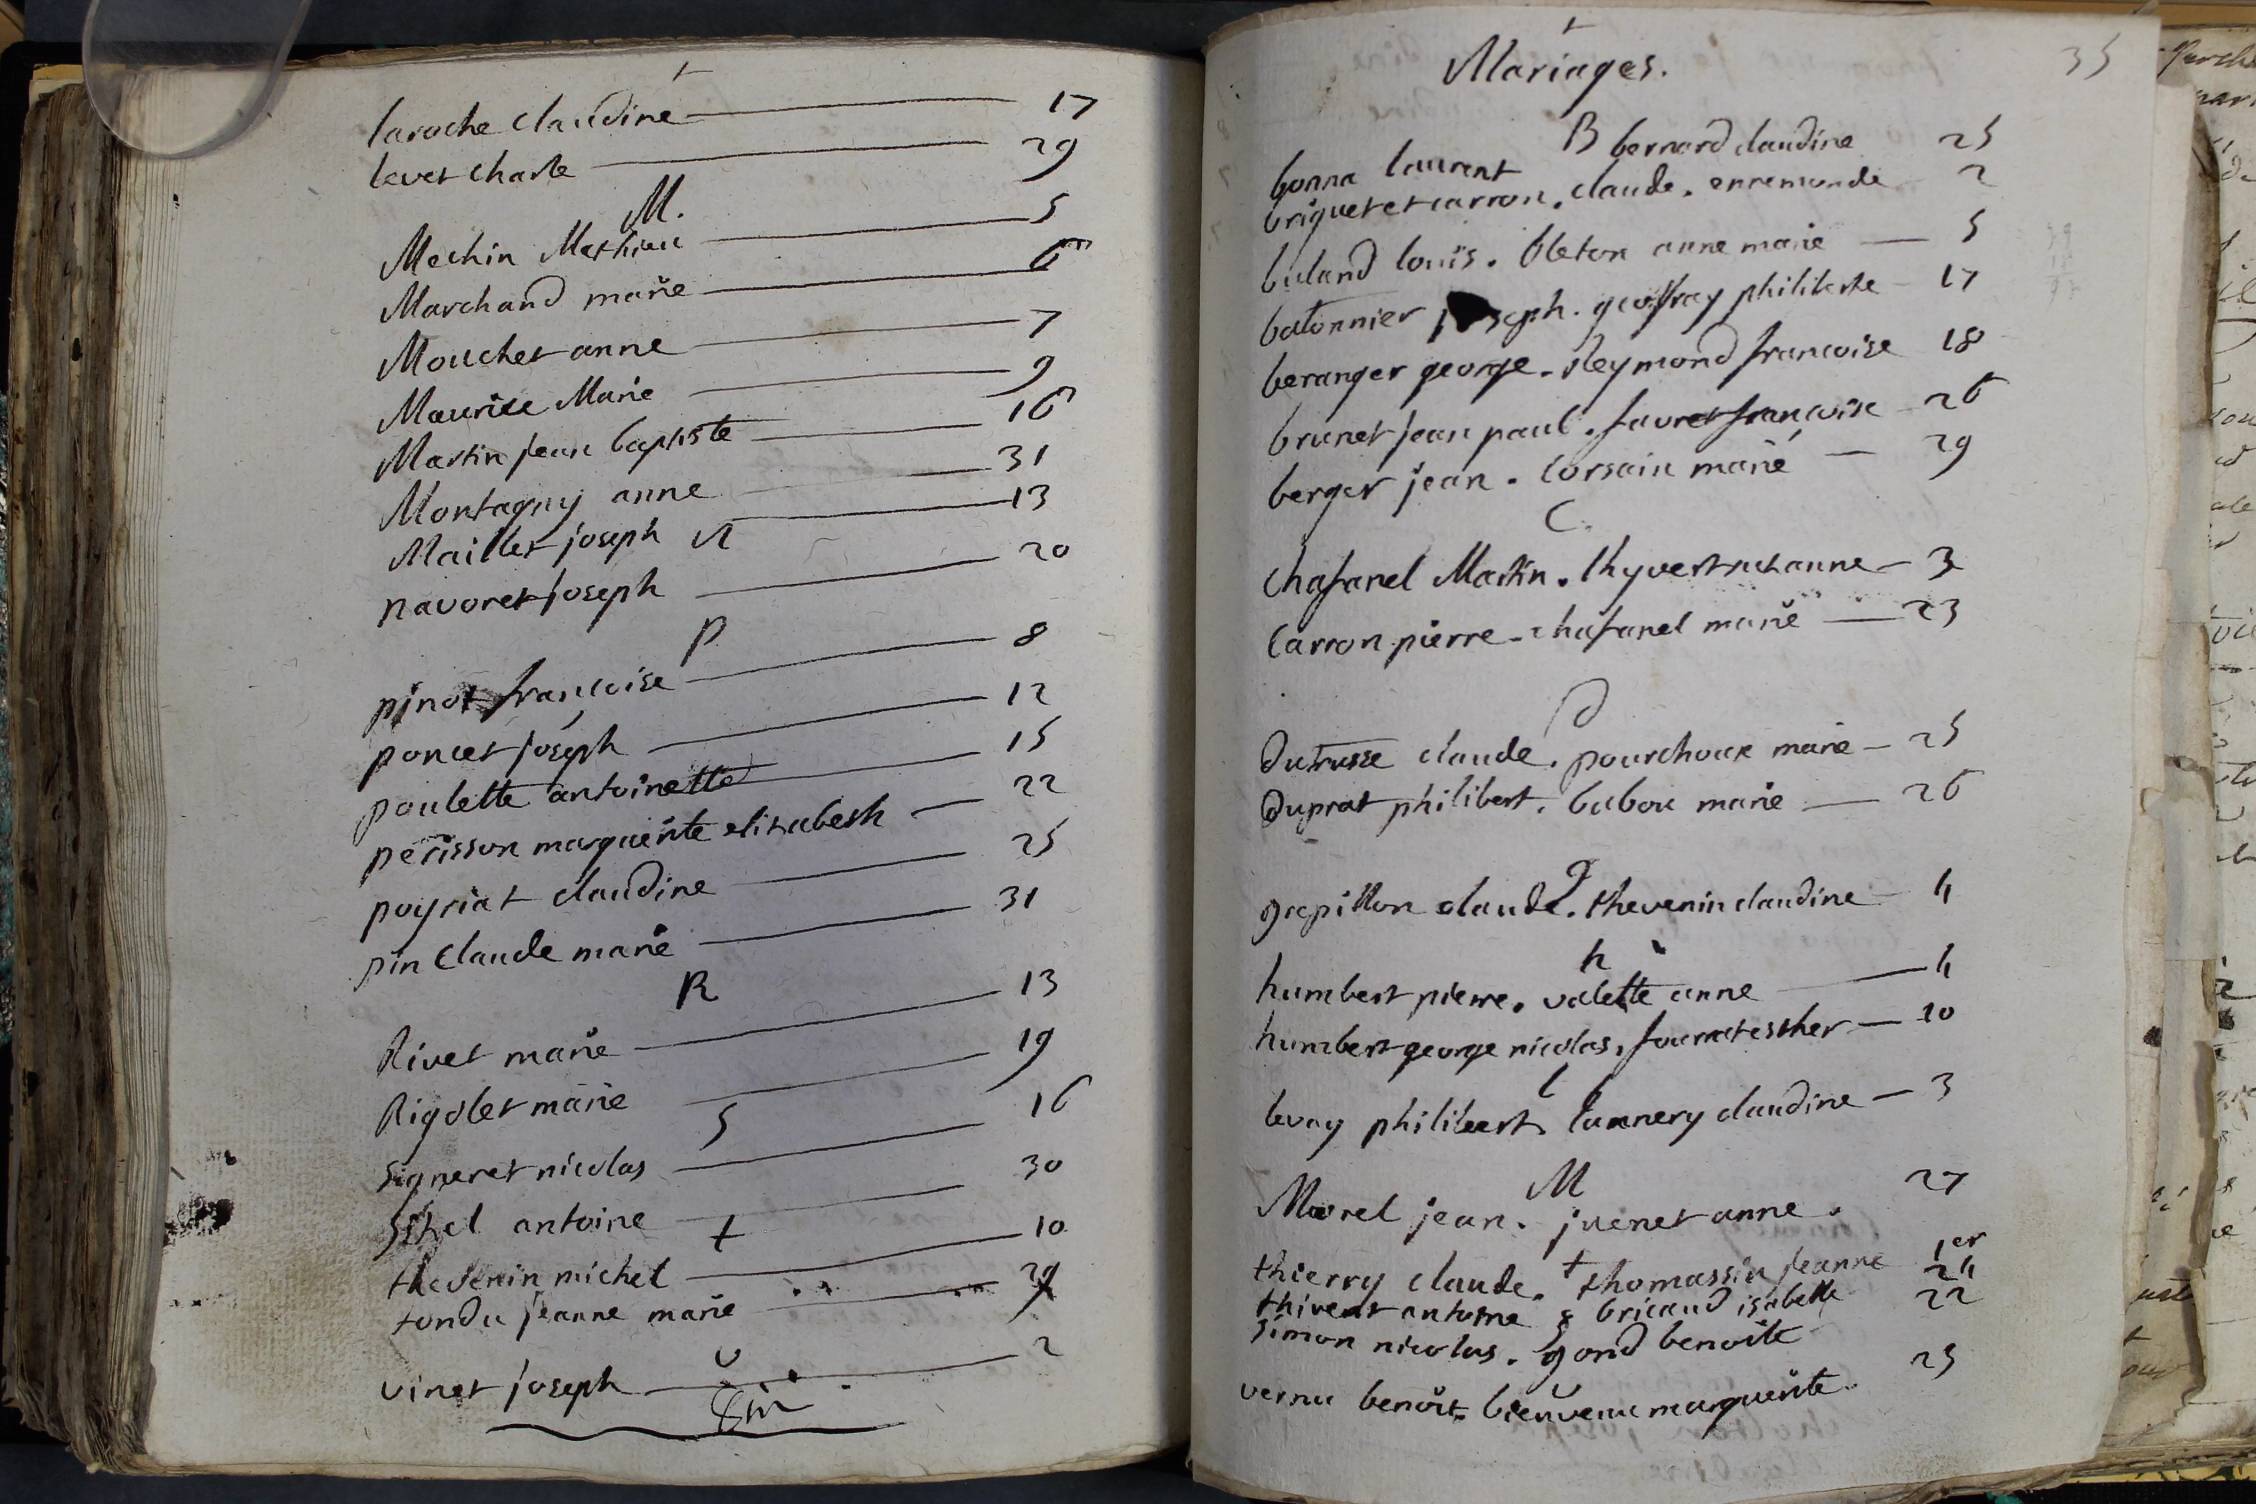 laroche claudine 17
levet charle 29
M.
Mechin Mathieu 5
Marchand marie 6
Mouchet anne 7
Maurice Marie 9
Martin jean baptiste 16
Montagny anne 31
Maillet joseph 13
N
navoret joseph 20
P
pinot francoise 8
poncet joseph 12
poulette antoinette 15
perisson marguerite elizabeth 22
poyriat claudine 25
pin claude marie 31
R
Rivet marie 13
Rigolet marie 19
S
signeret nicolas 16
antoine 30
t
thevenin michel 10
tondu jeanne marie 29
v
vinet joseph 2
fin
Mariages.
35
B
bonna laurent bernard claudine 25
briquet et carron. claude. enremonde 2
buland louis. bleton anne marie 5
batonnier joseph. geoffray philiberte 17
beranger george. Reymond francoise 18
brunet jean paul. favret francoise 26
berger jean. corsain marie 29
C.
chafanel Martin. thyvert suzanne 3
carron pierre. chafanel marie 23
D
Dutrusse claude. pourchoux marie 25
Duprat philibert. babou marie 26
g
grepillon claude. thevenin claudine 4
h
humbert pierre. valette anne 4
humbert george nicolas. esther 10
l
levay philibert. lannery claudine 3
M
Morel jean. juenet anne. 27
t
thierry claude. thomassin jeanne 1er
thivent antoine bricaud isabelle 24
S
simon nicolas. gond benoite 22
v
vernu benoit. bienvenu marguerite. 25